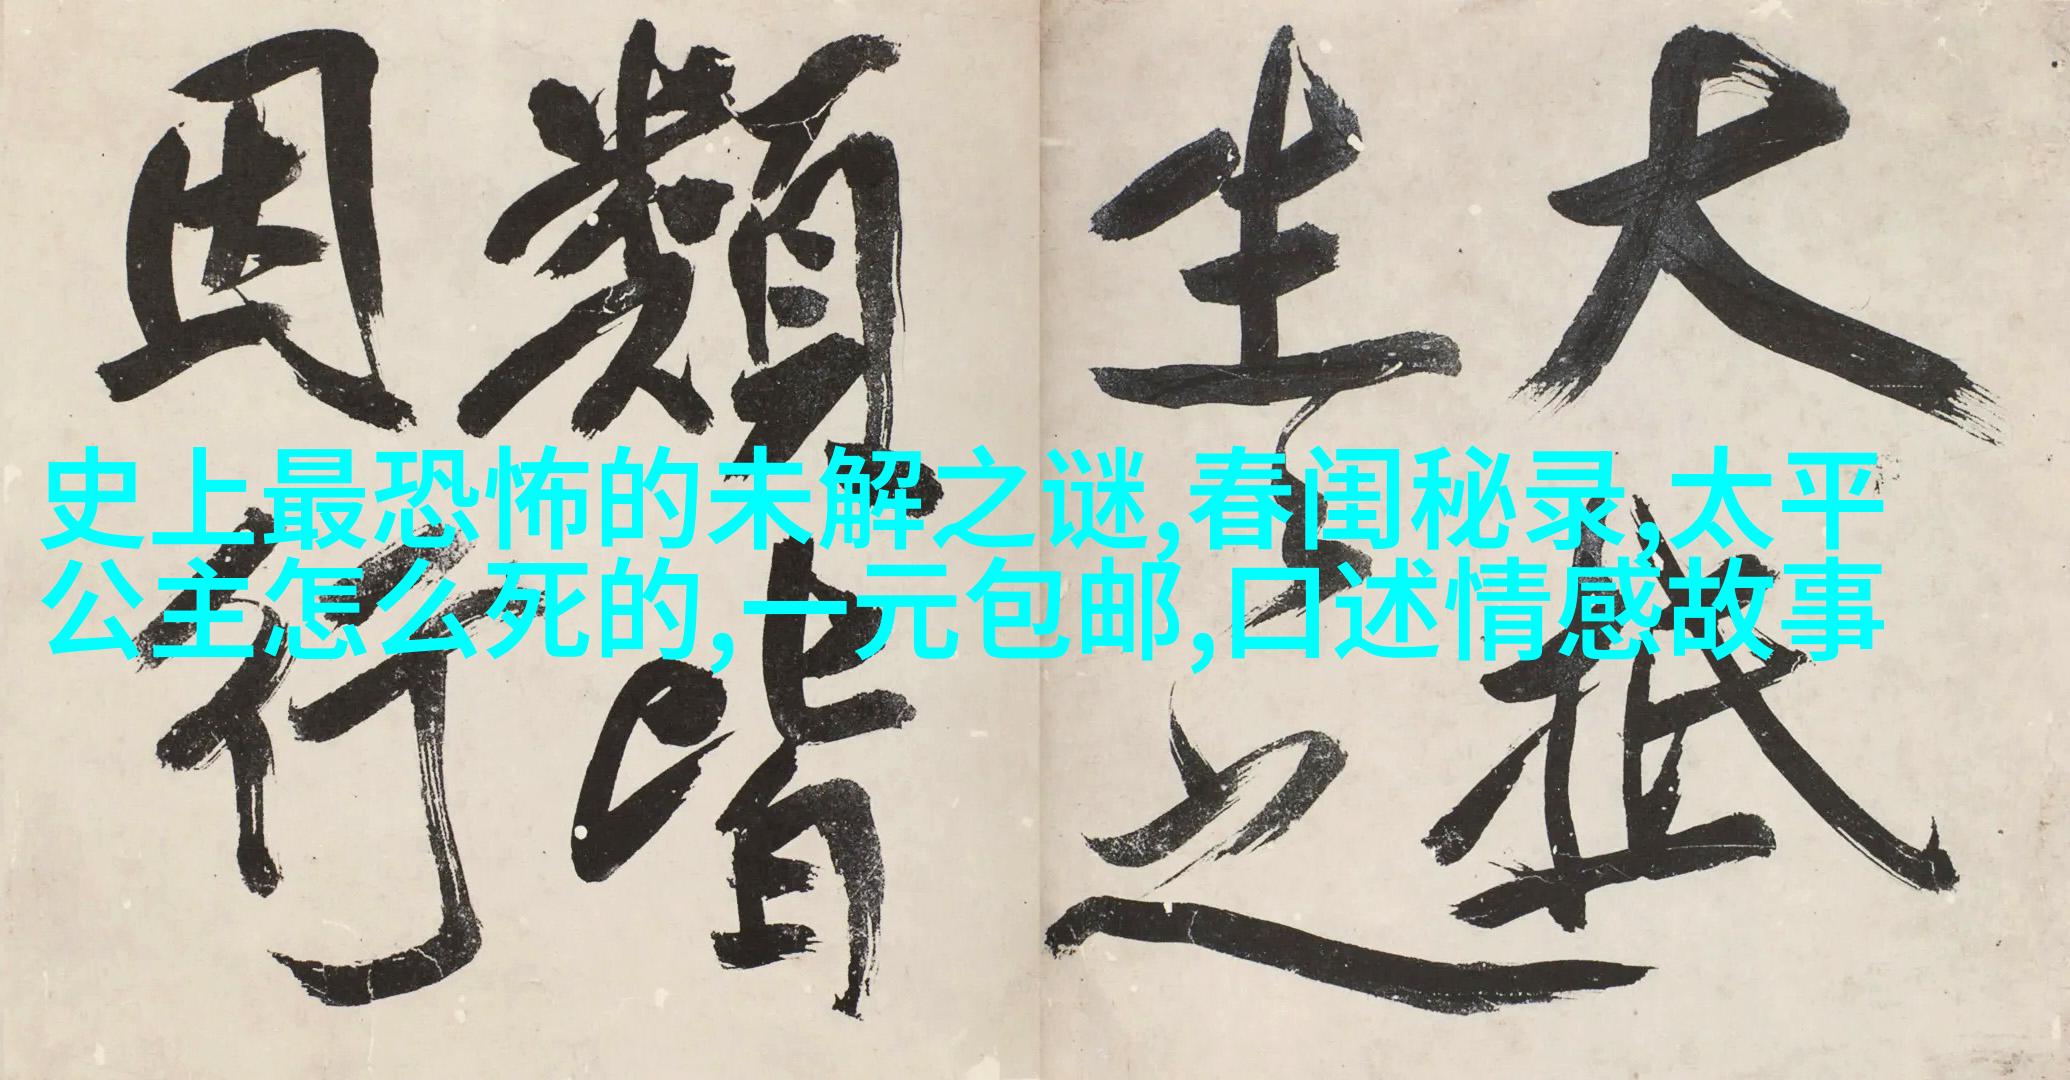 大抵
生之
類皆
因行
史上最恐怖的未解之谜,春闺秘录,太平
公主怎么死的,一元包邮,口述情感故事